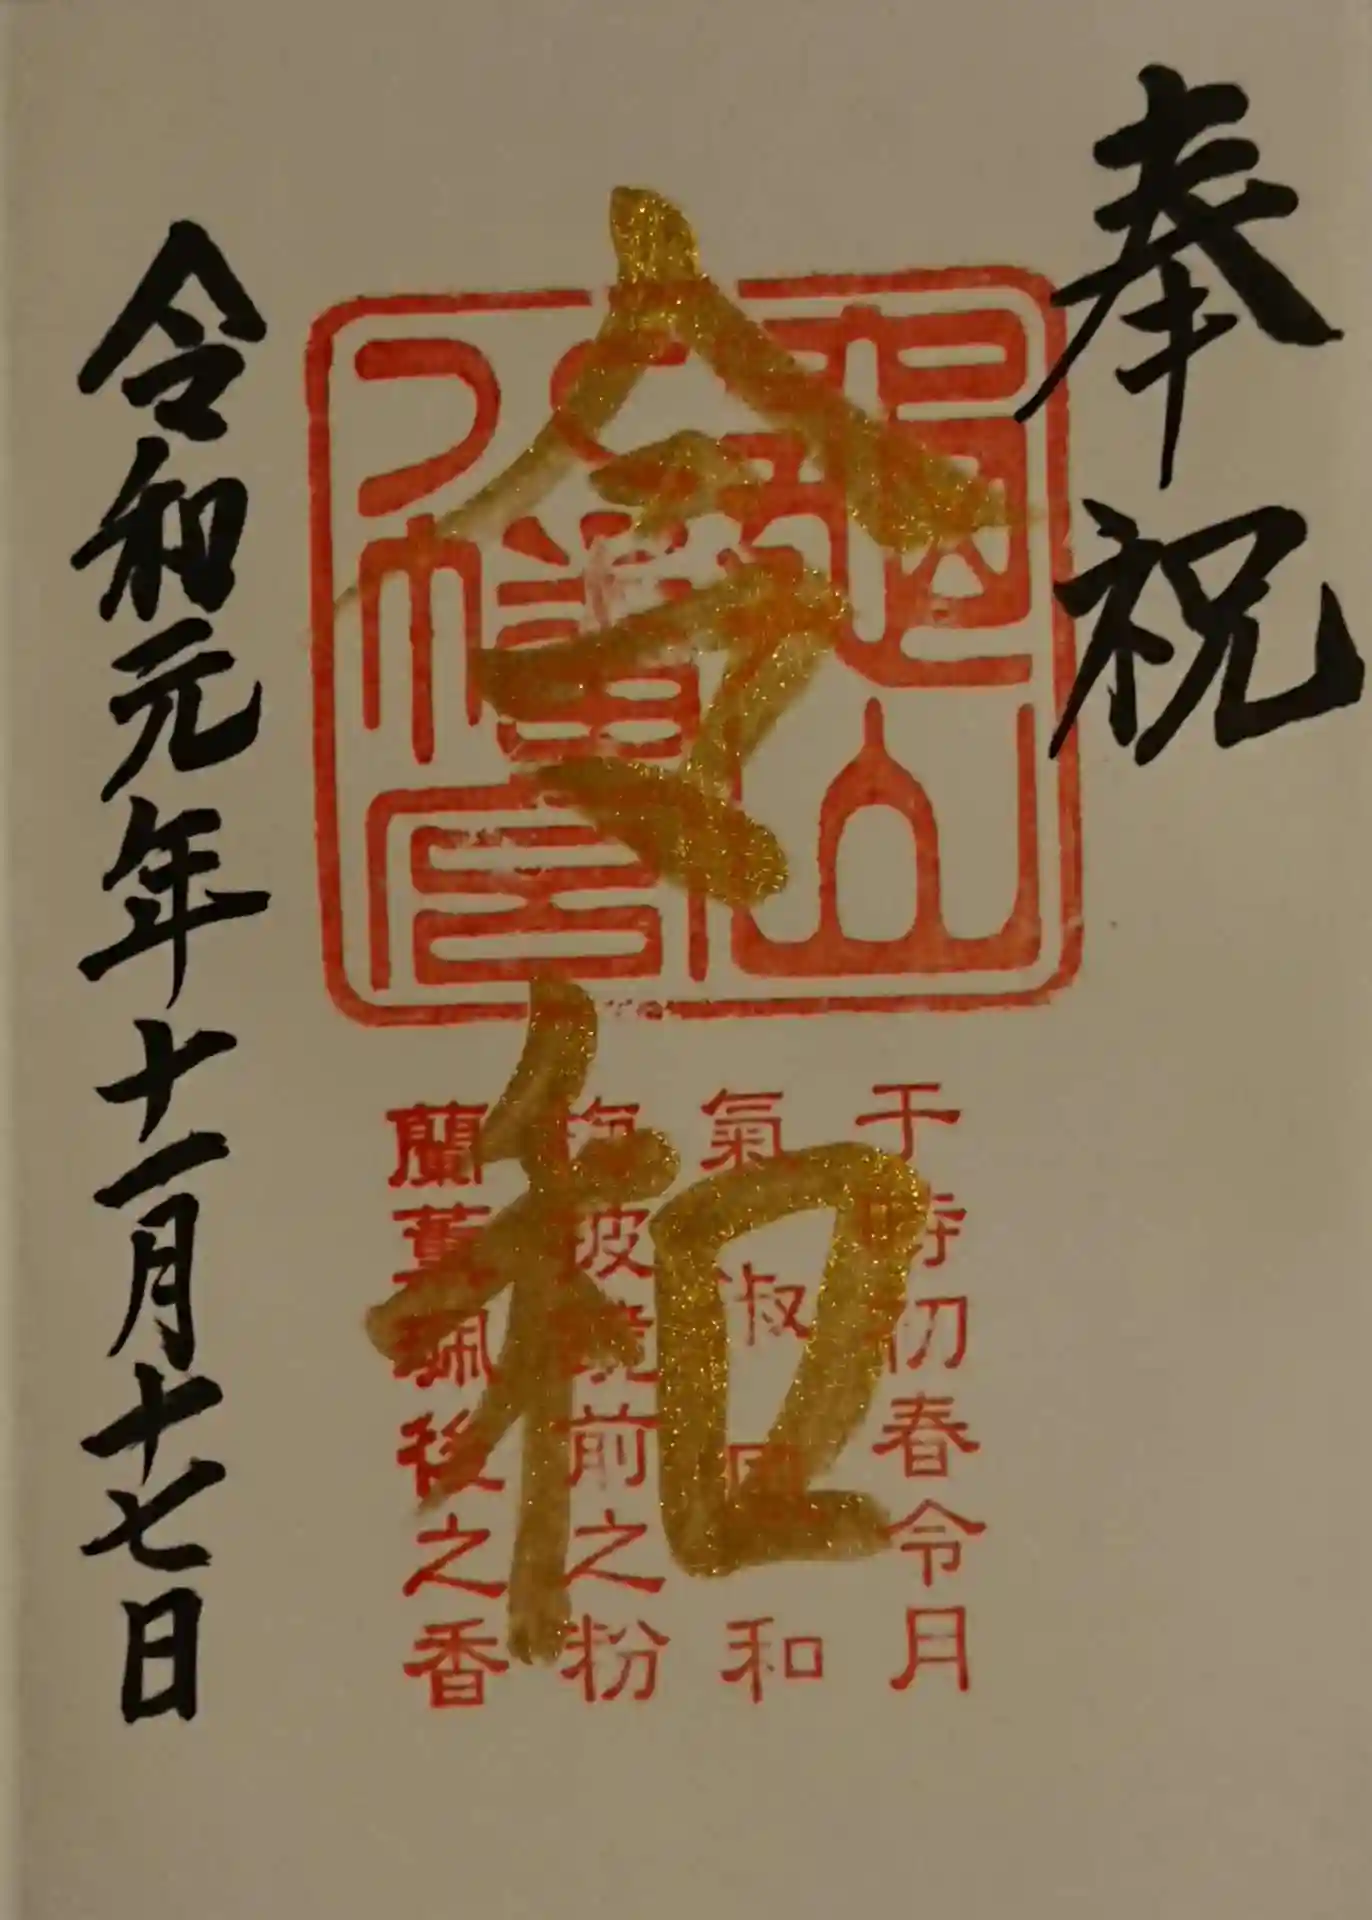 奉祝
山
八幡宮
令和
于時初春令月
氣淑風和
梅披鏡前之粉
蘭薫珮後之香
令和元年十一月十七日